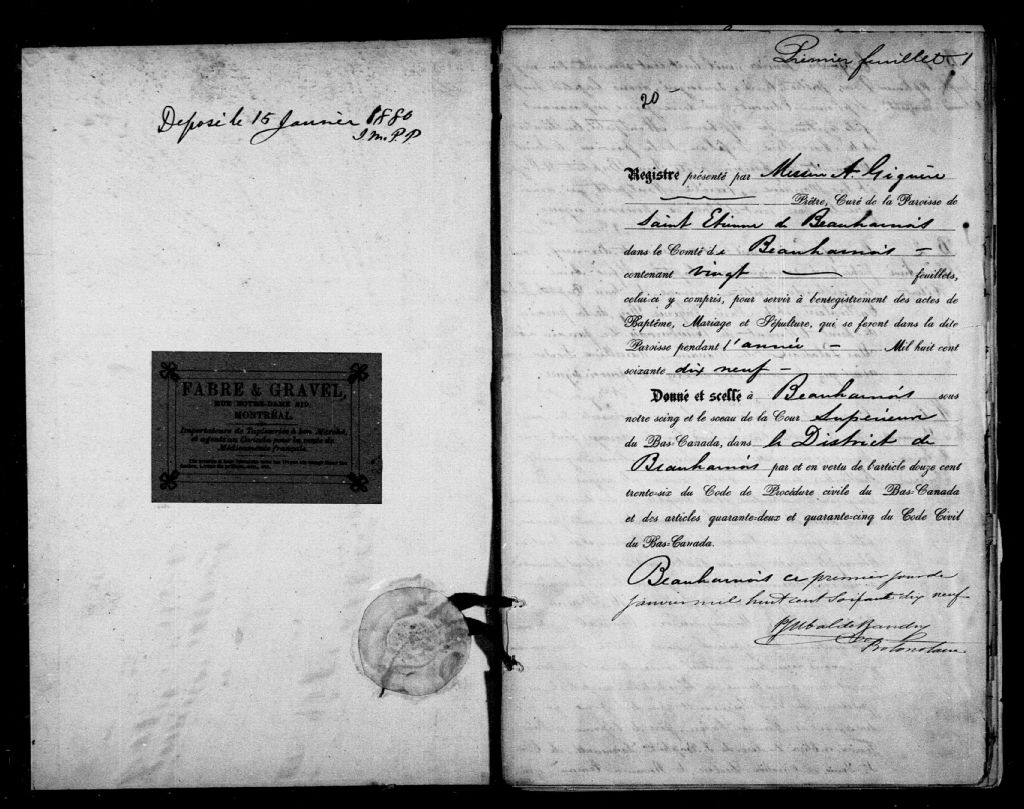 Deposé le 15 Janvier 1880
J. M. P. P.
FABRE & GRAVEL,
RUE NOTRE-DAME 219.
MONTRÉAL.
Importateurs de Tapisseries à bon Marché,
et agents au Canada pour la vente de
Médicaments français.
Premier feuillet 1
20
Registre présenté par Messire A. Giguère
Prêtre, Curé de la Paroisse de
Saint Etienne de Beauharnois
dans le Comté de Beauharnois –
contenant vingt — feuillets,
celui-ci y compris, pour servir à l'enregistrement des actes de
Baptême, Mariage et Sépulture, qui se feront dans la dite
Paroisse pendant l'année – Mil huit cent
soixante dix neuf –
Donné et scellé à Beauharnois sous
notre seing et le sceau de la Cour Supérieure
du Bas-Canada, dans le District de
Beauharnois par et en vertu de l'article douze cent
trente-six du Code de Procédure civile du Bas-Canada
et des articles quarante-deux et quarante-cinq du Code Civil
du Bas-Canada.
Beauharnois ce premier jour de
Janvier mil huit cent soixante dix neuf
Protonotaire